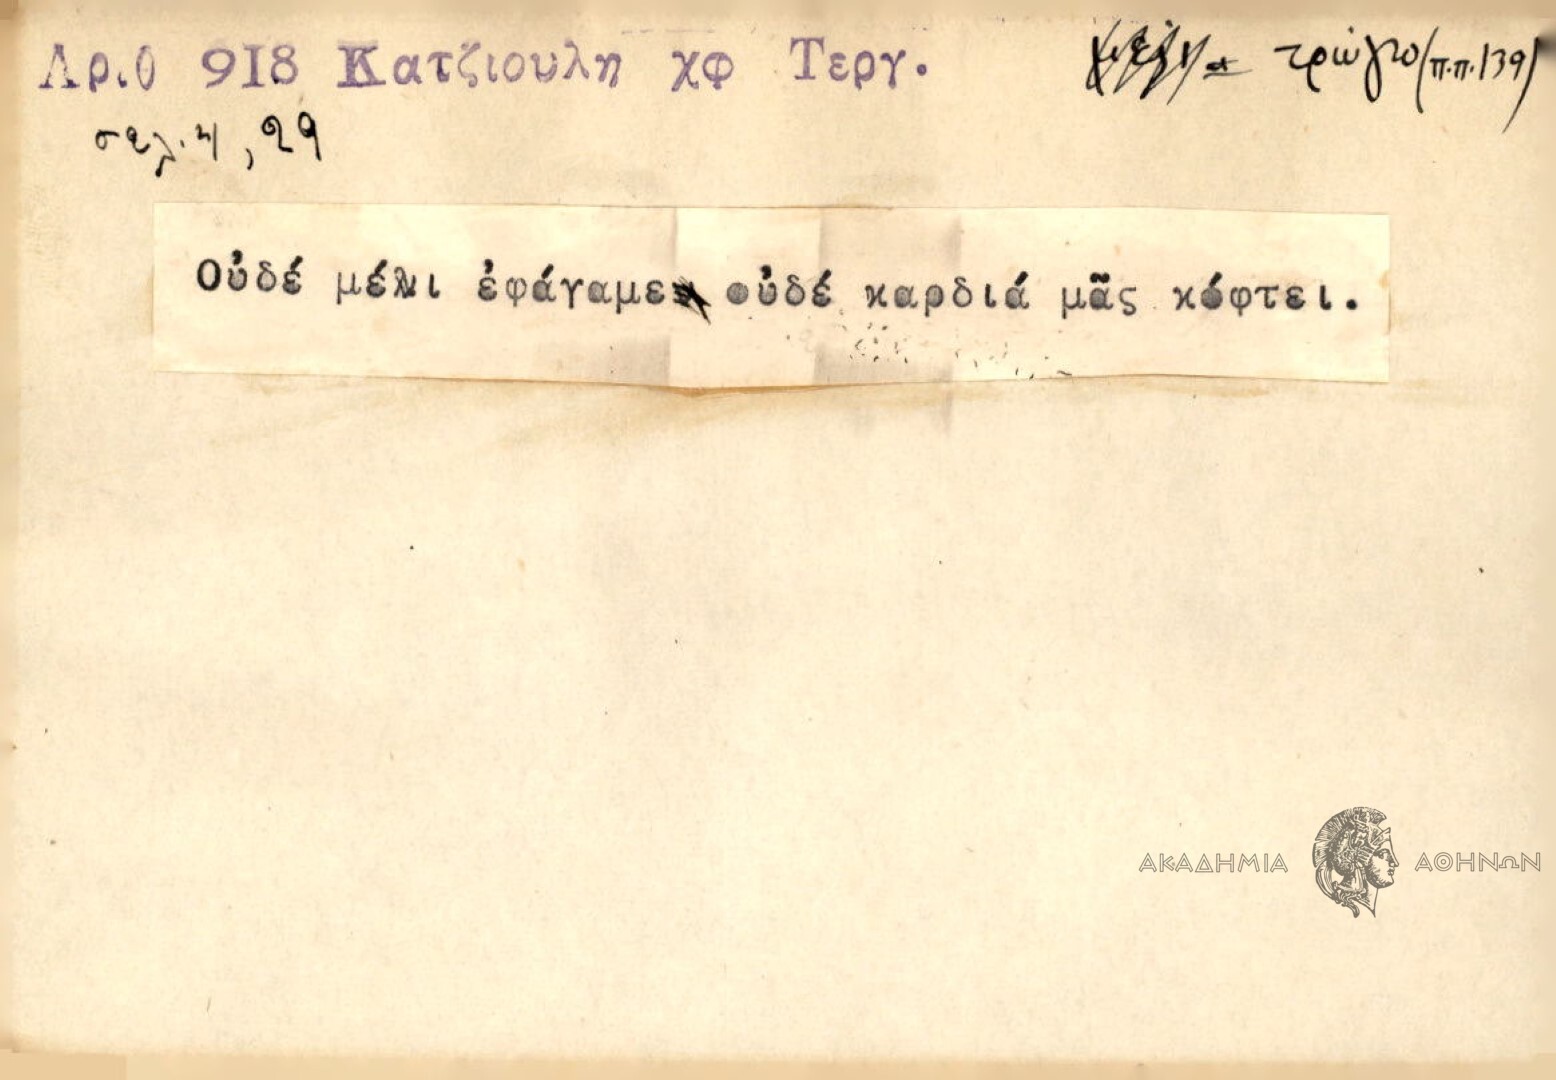 Αριθ 918 Κατζιουλη χφ Τεργ.
τρώγω (π.π. 139)
σελ. 4, 29
Οὐδέ μέλι ἐφάγαμε οὐδέ καρδιά μᾶς κόφτει.
ΑΚΑΔΗΜΙΑ ΑΘΗΝΩΝ